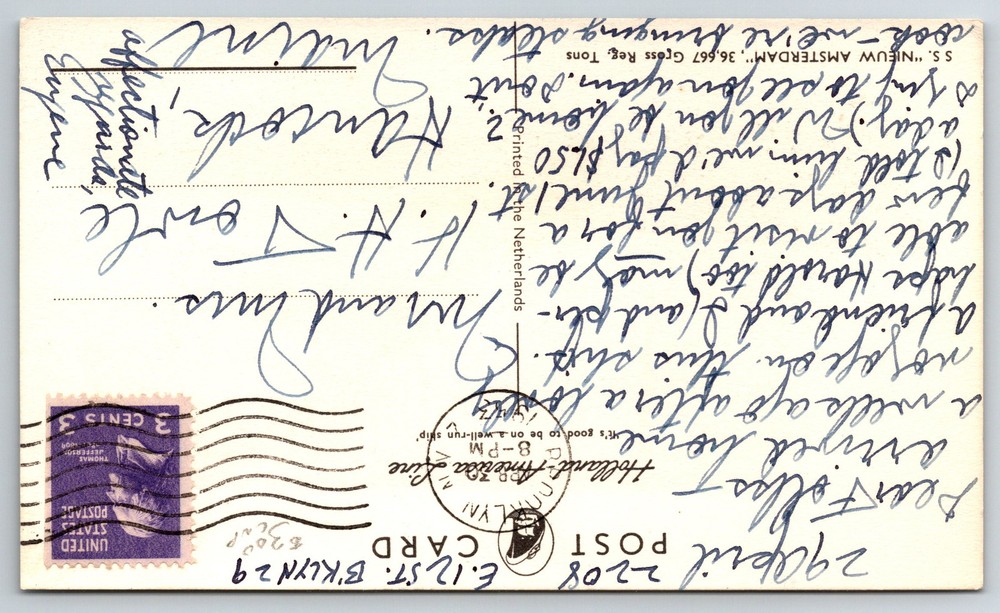 29 April
2208 E. 12 ST. B'KLYN 29
POST CARD
Dear Folks—
arrived home
a week ago after a lovely
voyage on this ship.
a friend and I (and per-
haps Harold too) may be
able to visit you for a
few days about June 1st.
(I told him we'd pay $1.50
a day.) Will you be home?
Dying to see you again. Don't
cook—we're bringing steaks.
affectionate
regards,
Eugene
Holland-America Line
'It's good to be on a well-run ship'
S.S. "NIEUW AMSTERDAM" 36,667 Gross Reg. Tons
Printed in the Netherlands
BROOKLYN N.Y.
APR 30
8-PM
UNITED
STATES
POSTAGE
THOMAS
JEFFERSON
3 CENTS 3
Mr and Mrs.
H. H. Towle
Hancock,
Maine